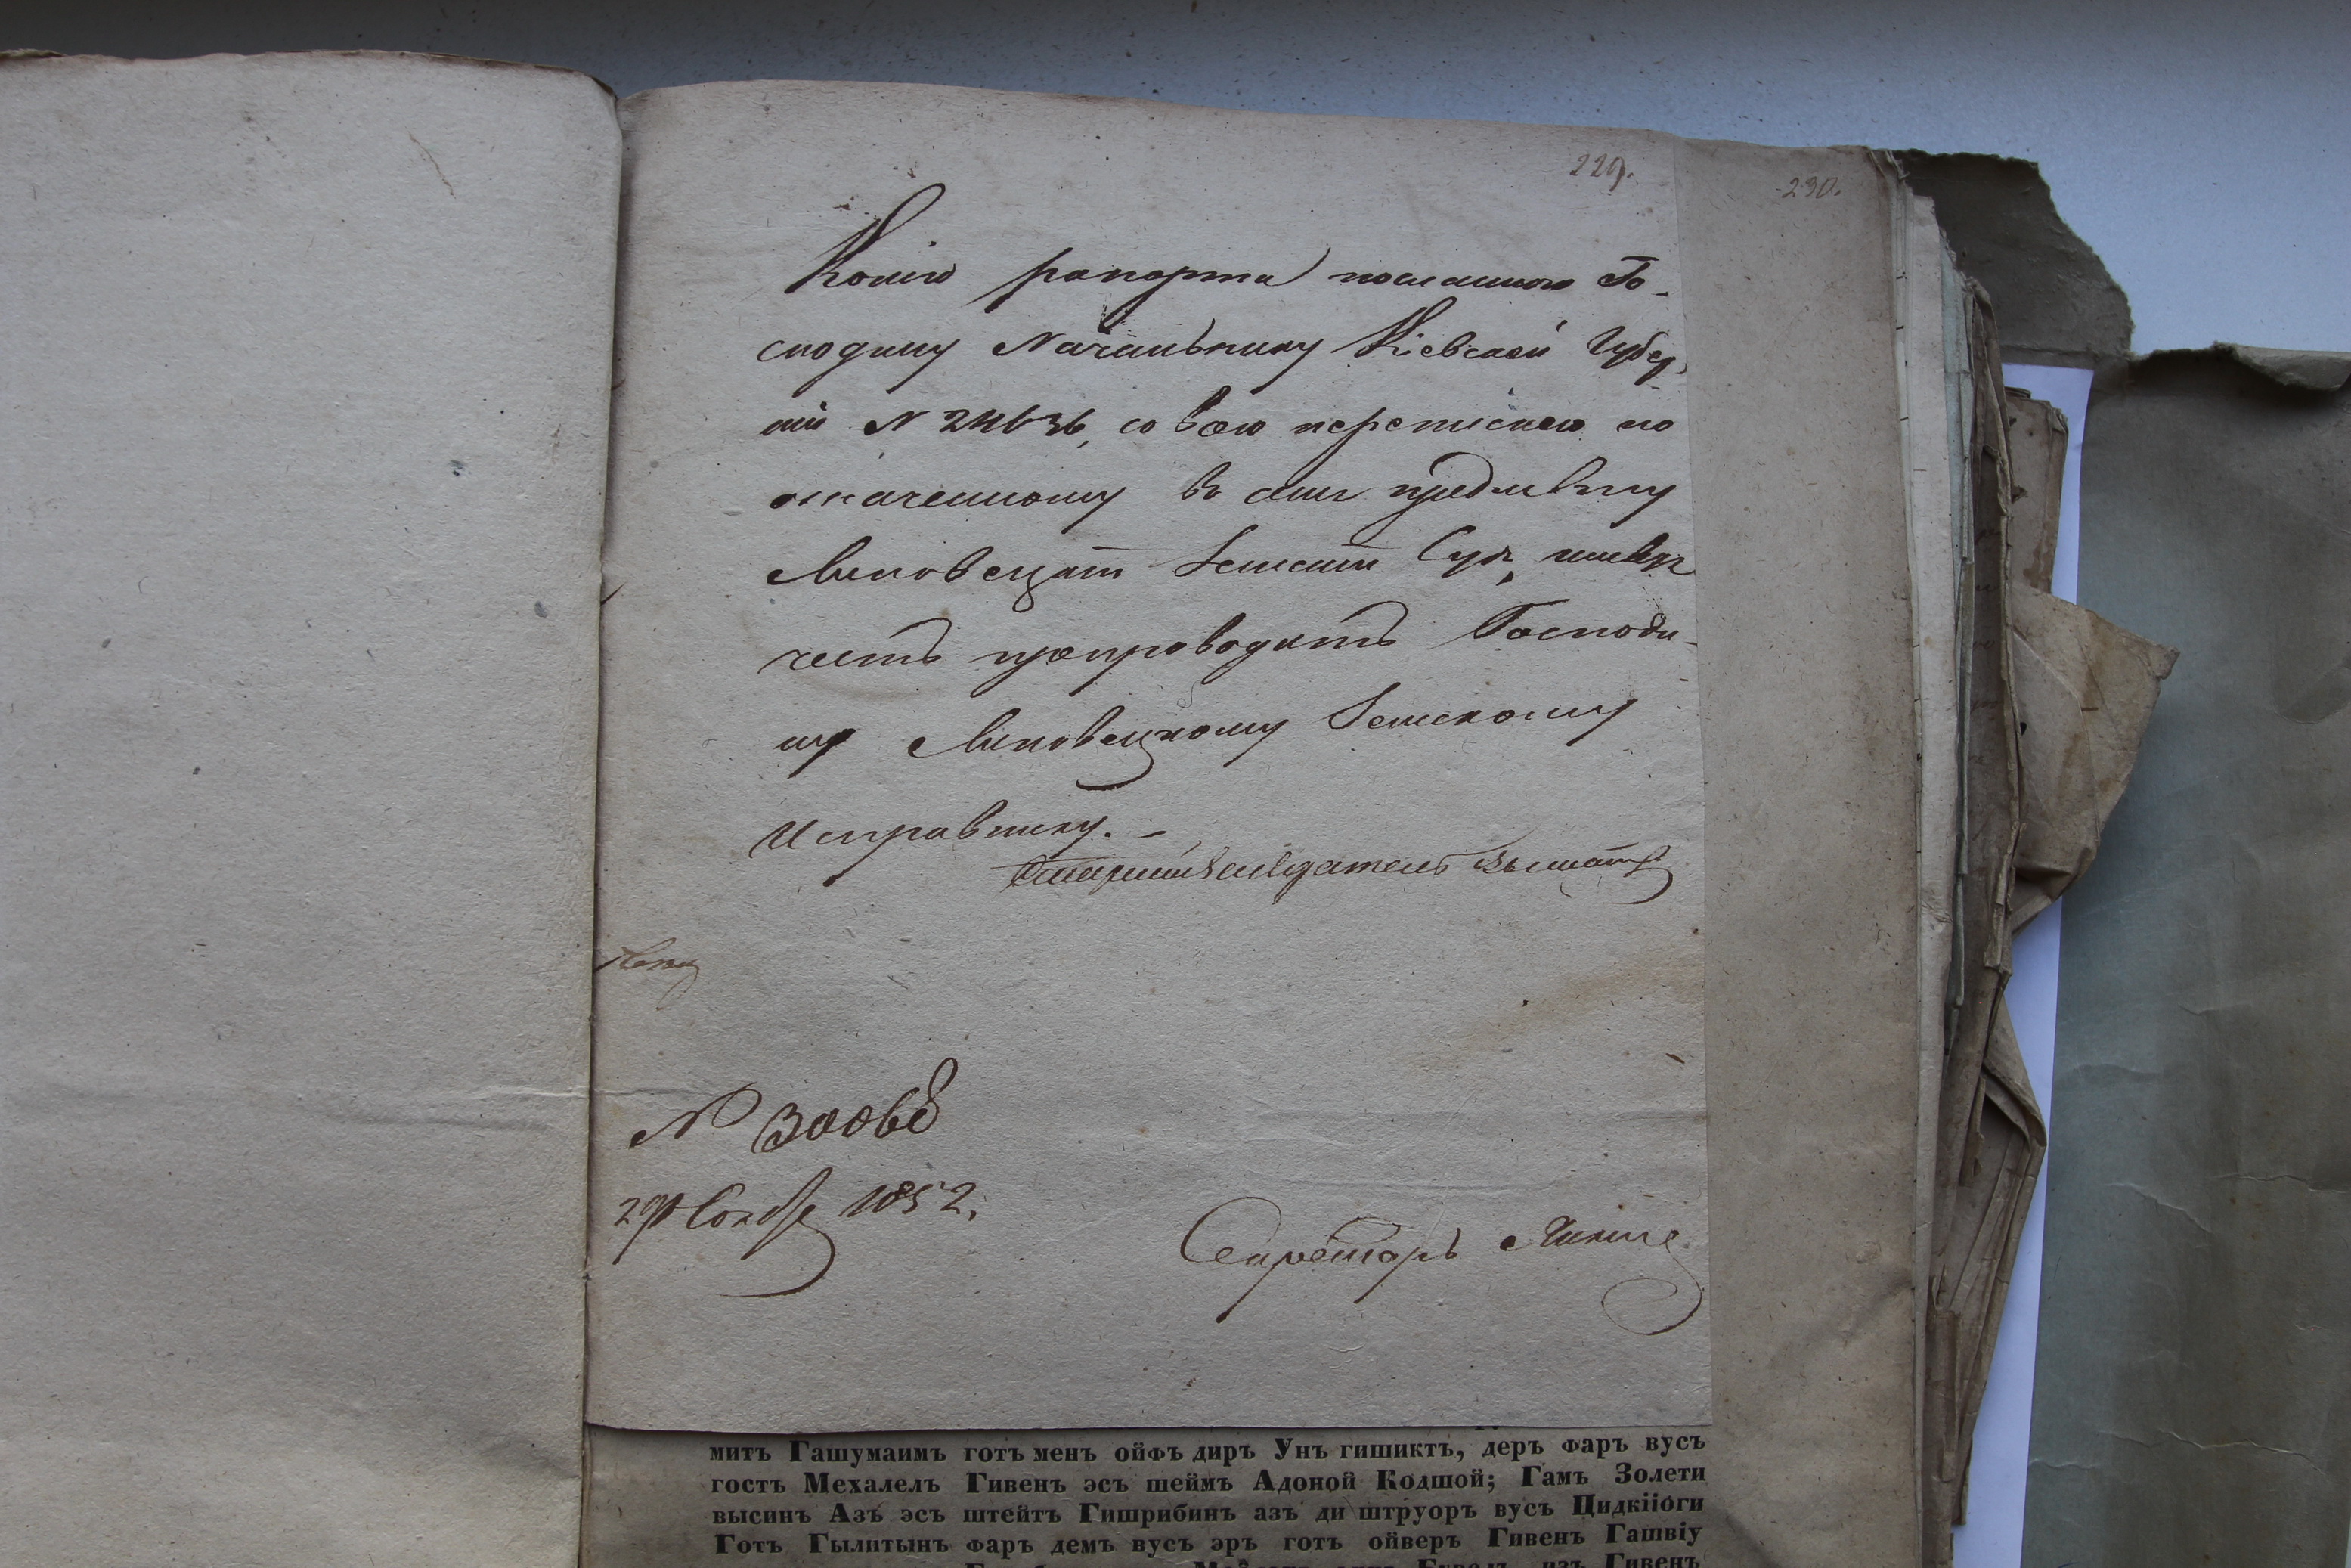 229.
230.
Копію рапорта посланного Го-
сподину Начальнику Кіевской Губер-
ніи N 24636, со всею перепискою по
означенному въ нем предмѣту
Липовецкій Земскій Судъ, имѣетъ
честь препроводить Господи-
ну Липовецкому Земскому
Исправнику. -
Старшій Засѣдатель
N 30068
29 1852.
Секретарь
митъ Гашумаимъ готъ менъ ойфъ диръ Унъ гишиктъ, деръ фаръ вусъ
гостъ Мехалелъ Гивенъ эсъ шеймъ Адоной Кодшой; Гамъ Золети
высинъ Азъ эсъ штейтъ Гишрибинъ азъ ди штруоръ вусъ Цидкіюги
Готъ Гылитынъ фаръ демъ вусъ эръ готъ ойверъ Гивенъ Гашвіу
изъ Гивенъ